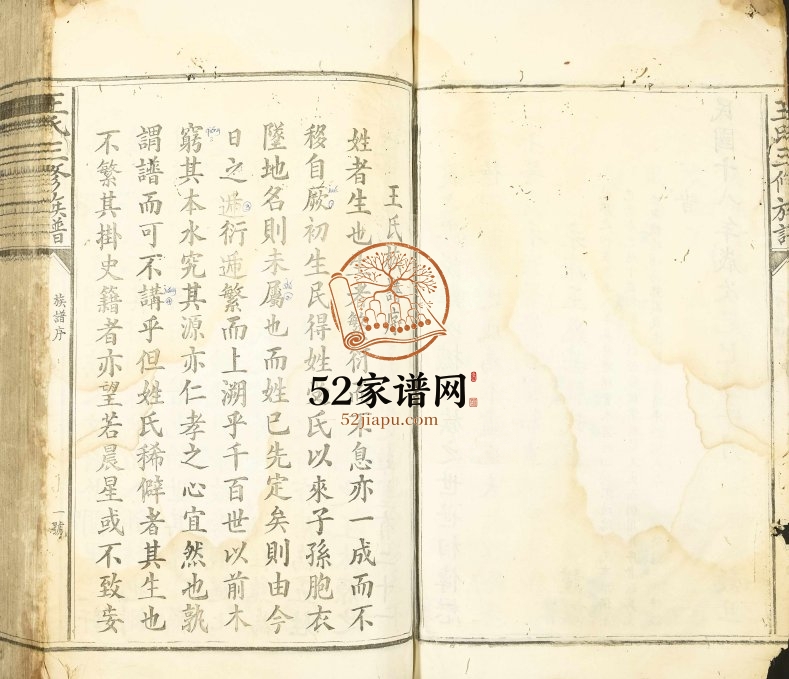 王氏三修族譜
王氏譜序
姓者生也繁衍而不息亦一成而不
移自厥初生民得姓氏以來子孫胞衣
墜地名則未屬也而姓已先定矣則由今
日之遞衍遞繁而上溯乎千百世以前木
窮其本水究其源亦仁孝之心宜然也孰
謂譜而可不講乎但姓氏稀僻者其生也
不繁其掛史籍者亦望若晨星或不致妄
王氏三修族譜
族譜序
一號
52家谱网
52jiapu.com